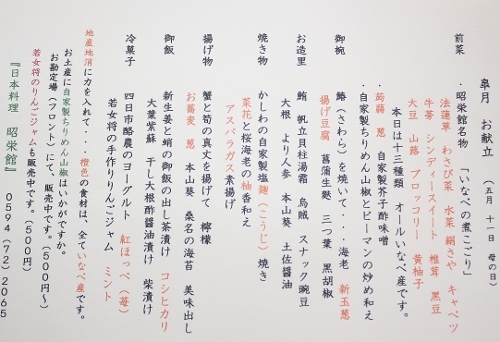 皐月 お献立 (五月 十一日 母の日)
前菜 ・昭栄館名物 「いなべの煮こごり」
法蓮草 わさび菜 水菜 絹さや キャベツ
牛蒡 シンディースイート 椎茸 黒豆
大豆 山蕗 ブロッコリー 黄柚子
本日は十三種類 オールいなべ産です。
・蒟蒻 葱 自家製芥子酢味噌
・自家製ちりめん山椒とピーマンの炒め和え
御椀 鰆(さわら)を焼いて・・・海老 新玉葱
揚げ豆腐 菖蒲生麩 三つ葉 黒胡椒
お造里 鮪 帆立貝柱湯霜 烏賊 スナック豌豆
大根 より人参 本山葵 土佐醤油
焼き物 かしわの自家製塩麹(こうじ)焼き
菜花と桜海老の柚香和え
アスパラガス素揚げ
揚げ物 蟹と筍の真丈を揚げて 檸檬
お蕎麦 葱 本山葵 桑名の海苔 美味出し
御飯 新生姜と蛸の御飯の出し茶漬け コシヒカリ
大葉紫蘇 干し大根酢醤油漬け 柴漬け
冷菓子 四日市酪農のヨーグルト 紅ほっぺ(苺)
若女将の手作りりんごジャム ミント
地産地消に力を入れて・・・橙色の食材は、全ていなべ産です。
お土産に自家製ちりめん山椒はいかがですか。
お勘定場(フロント)にて、販売中です。(500円~)
若女将のりんごジャムも販売中です。(500円)
『日本料理 昭栄館』 0594(72)2065